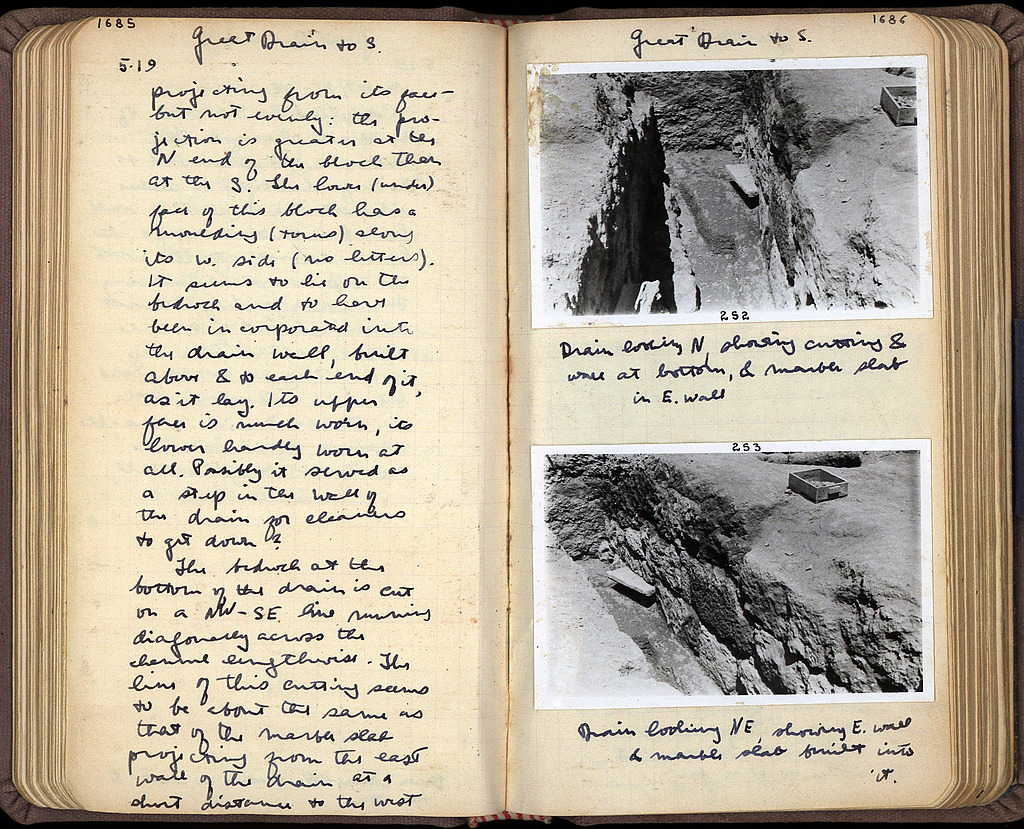 1685
Great Drain to S.
5.19
projecting from its face –
but not evenly: the pro-
jection is greater at the
N end of the block than
at the S. The lower (under)
face of this block has a
moulding (torus) along
its W. side (no letters).
It seems to lie on the
bedrock and to have
been incorporated into
the drain wall, built
above & to each end of it,
as it lay. Its upper
face is much worn, its
lower hardly worn at
all. Possibly it served as
a step in the wall of
the drain for cleaners
to get down?
The bedrock at the
bottom of the drain is cut
on a NW-SE line running
diagonally across the
channel lengthwise. The
line of this cutting seems
to be about the same as
that of the marble slab
projecting from the east
wall of the drain at a
short distance to the west
1686
Great Drain to S.
252
Drain looking N, showing cutting &
wall at bottom, & marble slab
in E. wall
253
Drain looking NE, showing E. wall
& marble slab built into
it.